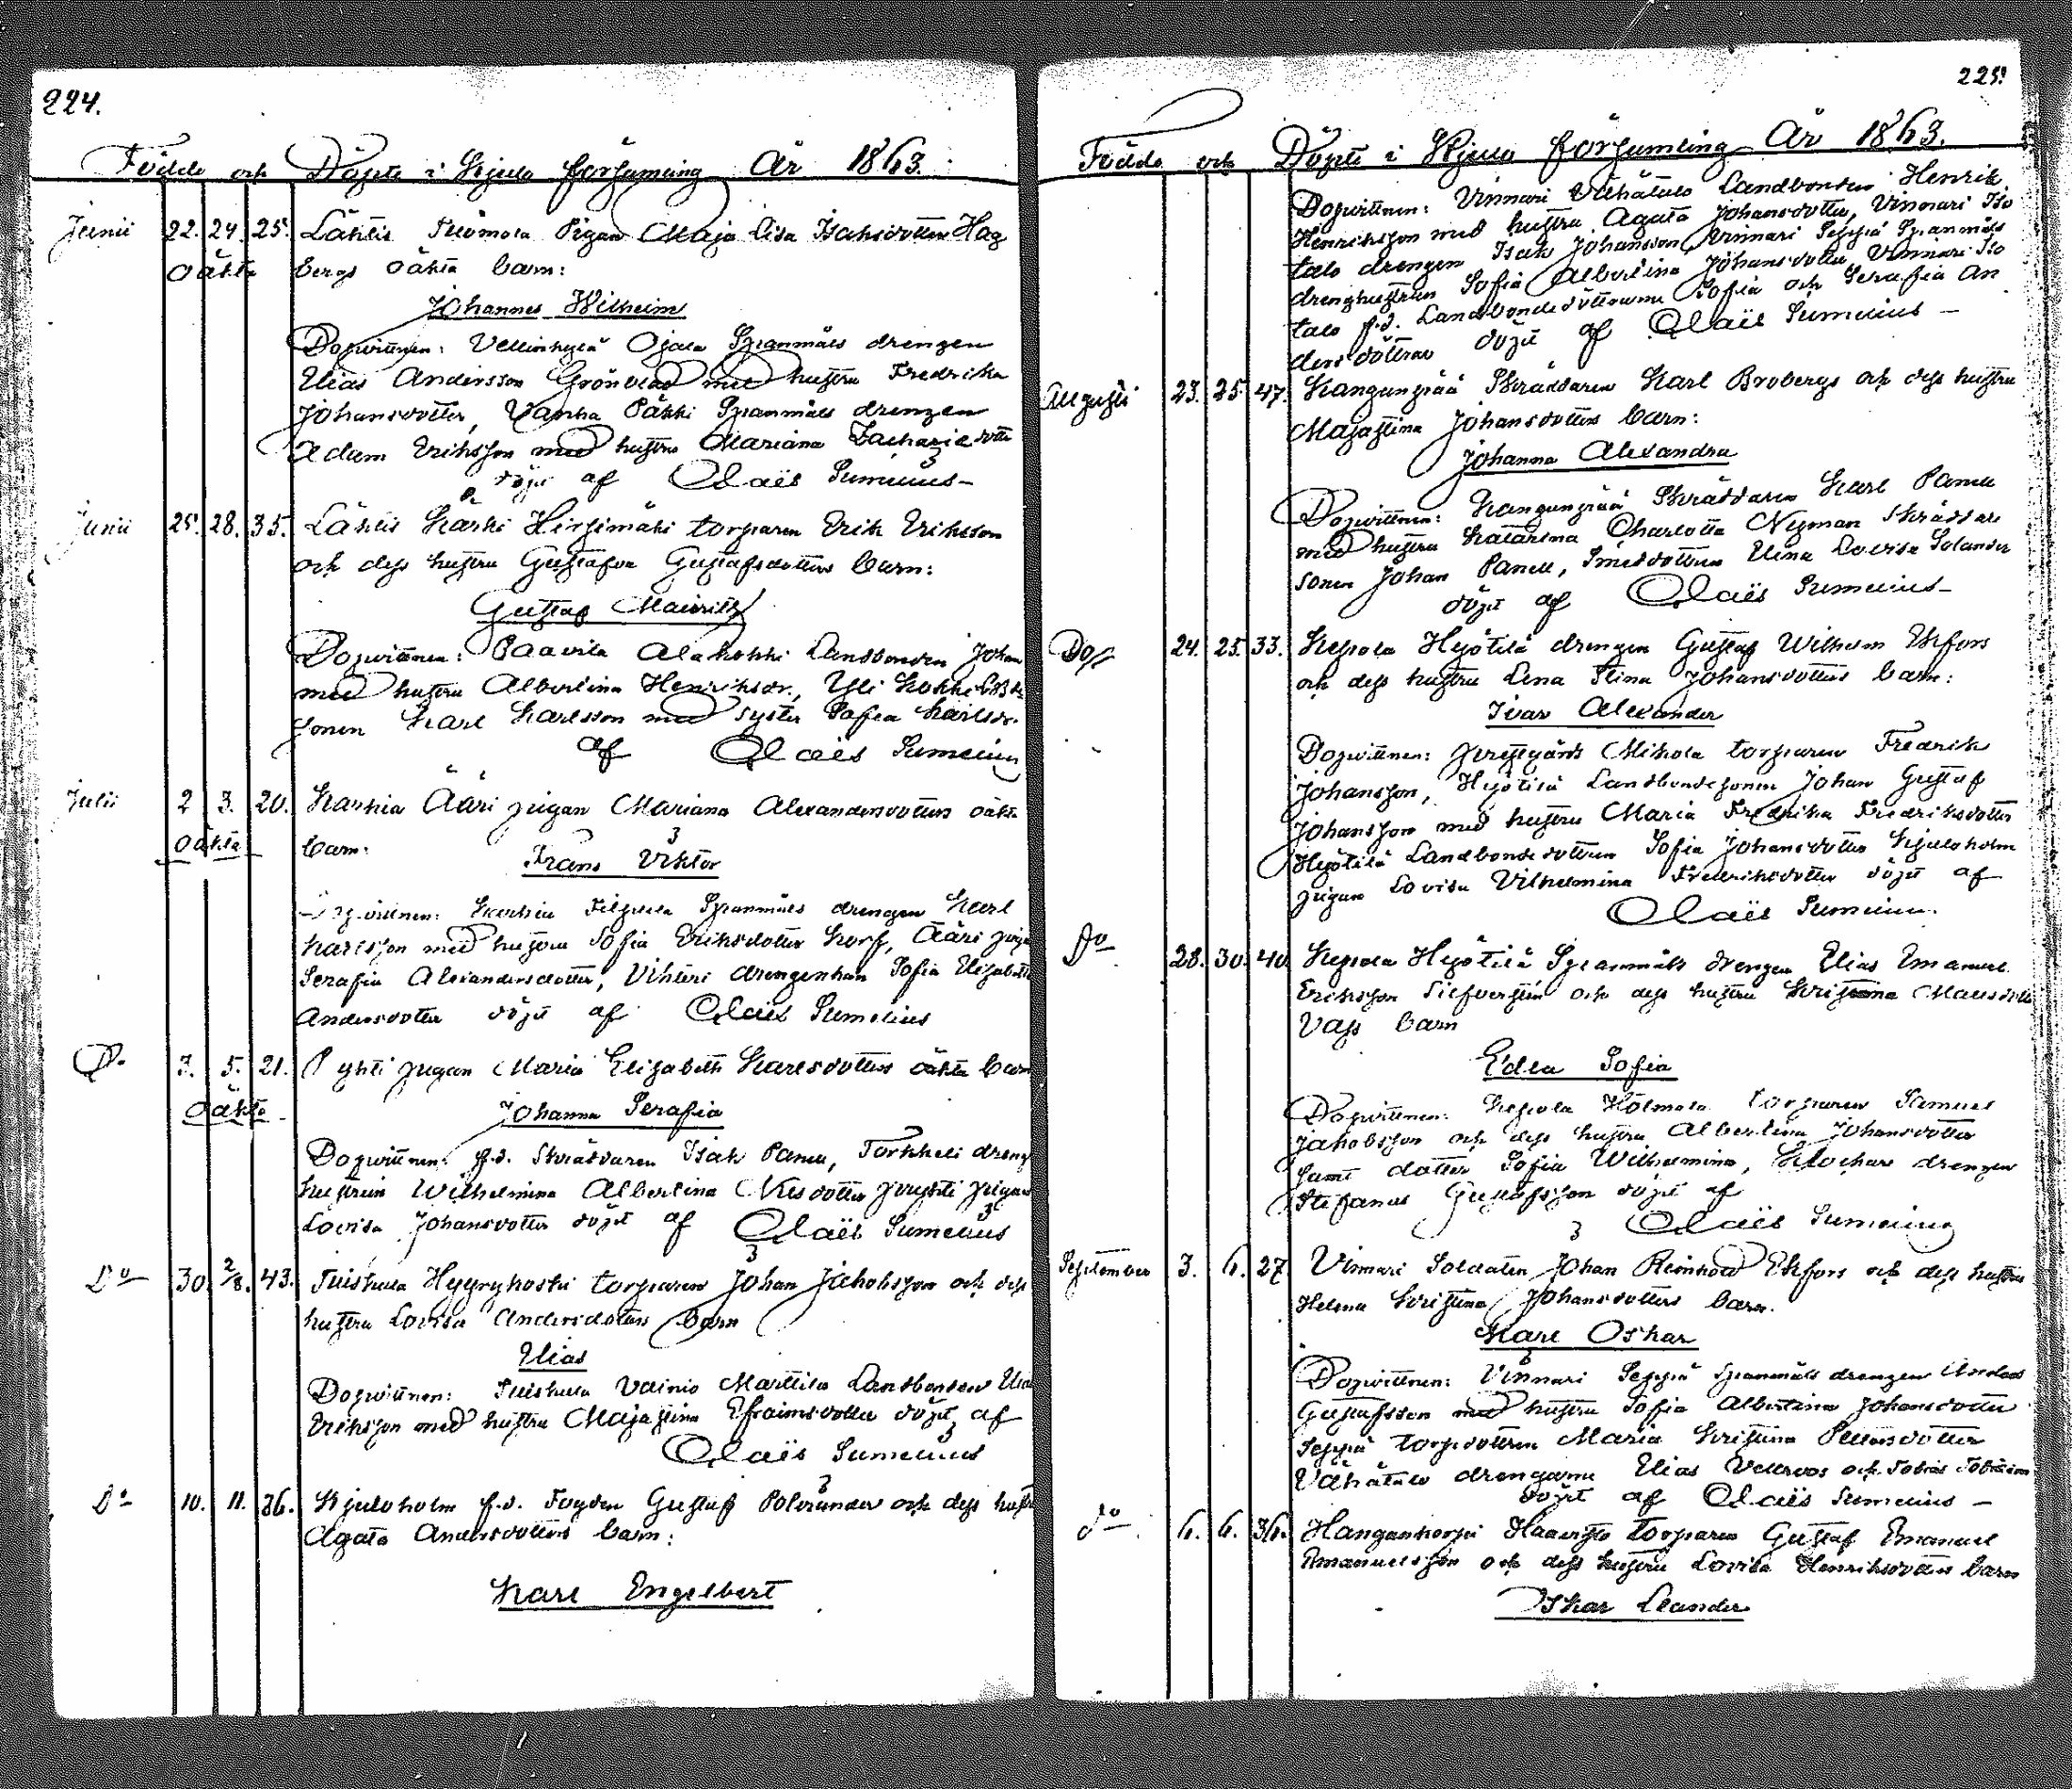 224.
Födde och Döpte i Kjulo församling År 1863.
Junii 22. 24. 25. Lähtis Tuomola Pigan Maja Lisa Isaksdotter Hag
oäkta bergs oäkta barn:
Johannes Wilhelm
Dopvittnen: Vellinkylä Ojala Spanmåls drengen
Elias Andersson Grönblad med hustru Fredrika
Johansdotter, Vanha Päkki Spanmåls drengen
Adam Eriksson med hustru Mariana Zachariedotter
döpt af Claës Sumelius
Junii 25. 28. 35. Lähtis Kärki Hirsimäki torparen Erik Eriksson
och dess hustru Gustafva Gustafsdotters barn:
Gustaf Mauritz
Dopvittnen: Paavila Alakokki Landbonden Johan
med hustru Albertina Henriksdr., Yli Kokki
sonen Karl Karlsson med syster Sofia Karlsdr.
af Claës Sumelius
Julii 2 3. 20. Karhia Ääri pigan Mariana Alexandersdotters oäkta
oäkta barn:
Frans Viktor
Dopvittnen: Karhia Filppula Spanmåls drengen Karl
Karlsson med hustru Sofia Eriksdotter Korp, Ääri pigan
Serafia Alexandersdotter, Vihteri drengenkan Sofia Elisabeth
Andersdotter döpt af Claës Sumelius
Do 3. 5. 21. Pyhti pigan Maria Elisabeth Karlsdotters oäkta barn
oäkta
Johanna Serafia
Dopvittnen: f.d. Skräddaren Isak Paneli, Torkkeli dreng
hustrun Wilhelmina Albertina Nilsdotter pigan
Lovisa Johansdotter döpt af Claës Sumelius
Do 30. 2/8. 43. Tuiskula Hyyrynkoski torparen Johan Jakobsson och dess
hustru Lovisa Andersdotters barn
Elias
Dopvittnen: Tuiskula Vainio Marttila Landbonden Elias
Eriksson med hustru Majastina Efraimsdotter döpt af
Claës Sumelius
Do 10. 11. 36. Kjuloholm f.d. Fogden Gustaf Polviander och dess hustru
Agata Andersdotters barn:
Karl Engelbert
225.
Födde och Döpte i Kjulo församling År 1863.
Dopvittnen: Vinnari Vähätalo Landbonden Henrik
Henriksson med hustru Agata Johansdotter, Vinnari Iso
talo drengen Isak Johansson, Vinnari Seppä Spanmåls
drenghustrun Sofia Albertina Johansdotter, Vinnari Iso
talo f.d. Landbondedöttrarne Sofia och Serafia An
dersdöttrar döpt af Claës Sumelius
Augusti 23. 25. 47. Kangunpää Skräddaren Karl Brobergs och dess hustru
Majastina Johansdotters barn:
Johanna Alexandra
Dopvittnen: Kangunpää Skräddaren Karl Panelli
med hustru Katarina Charlotta Nyman Skräddare
sonen Johan Panelli, Smedsdottren Elina Lovisa Solander
döpt af Claës Sumelius
Do 24. 25. 33. Kepola Hyötilä drengen Gustaf Wilhelm Ekfors
och dess hustru Lena Stina Johansdotters barn:
Ivar Alexander
Dopvittnen: Mikola torparen Fredrik
Johansson, Hyötilä Landbondesonen Johan Gustaf
Johansson med hustru Maria Fredrika Fredriksdotter
Hyötilä Landbondedottren Sofia Johansdotter Kjuloholm
pigan Lovisa Vilhelmina Fredriksdotter döpt af
Claës Sumelius.
Do 28. 30. 40. Kepola Hyötilä Spanmåls drengen Elias Emanuel
Eriksson Siefverstén och dess hustru Kristina Matsdotter
Vass barn
Edla Sofia
Dopvittnen: Kepola Hölmola torparen Samuel
Jakobsson och dess hustru Albertina Johansdotter
samt dotter Sofia Wilhelmina, Klockare drengen
Stefanus Gustafsson döpt af
Claës Sumelius
September 3. 6. 27. Vinnari Soldaten Johan Reinhold Ekfors och dess hustru
Helena Kristina Johansdotters barn.
Karl Oskar
Dopvittnen: Vinnari Seppä Spanmåls drengen Andreas
Gustafsson med hustru Sofia Albertina Johansdotter
Seppä torpdottren Maria Kristina Pettersdotter
Vähätalo drengarne Elias Vellroos och Tobias Tobiasson
döpt af Claës Sumelius
do 6. 6. 36. Hangankorpi Haavisto torparen Gustaf Emanuel
Emanuelsson och dess hustru Lovisa Henriksdotters barn
Oskar Leander